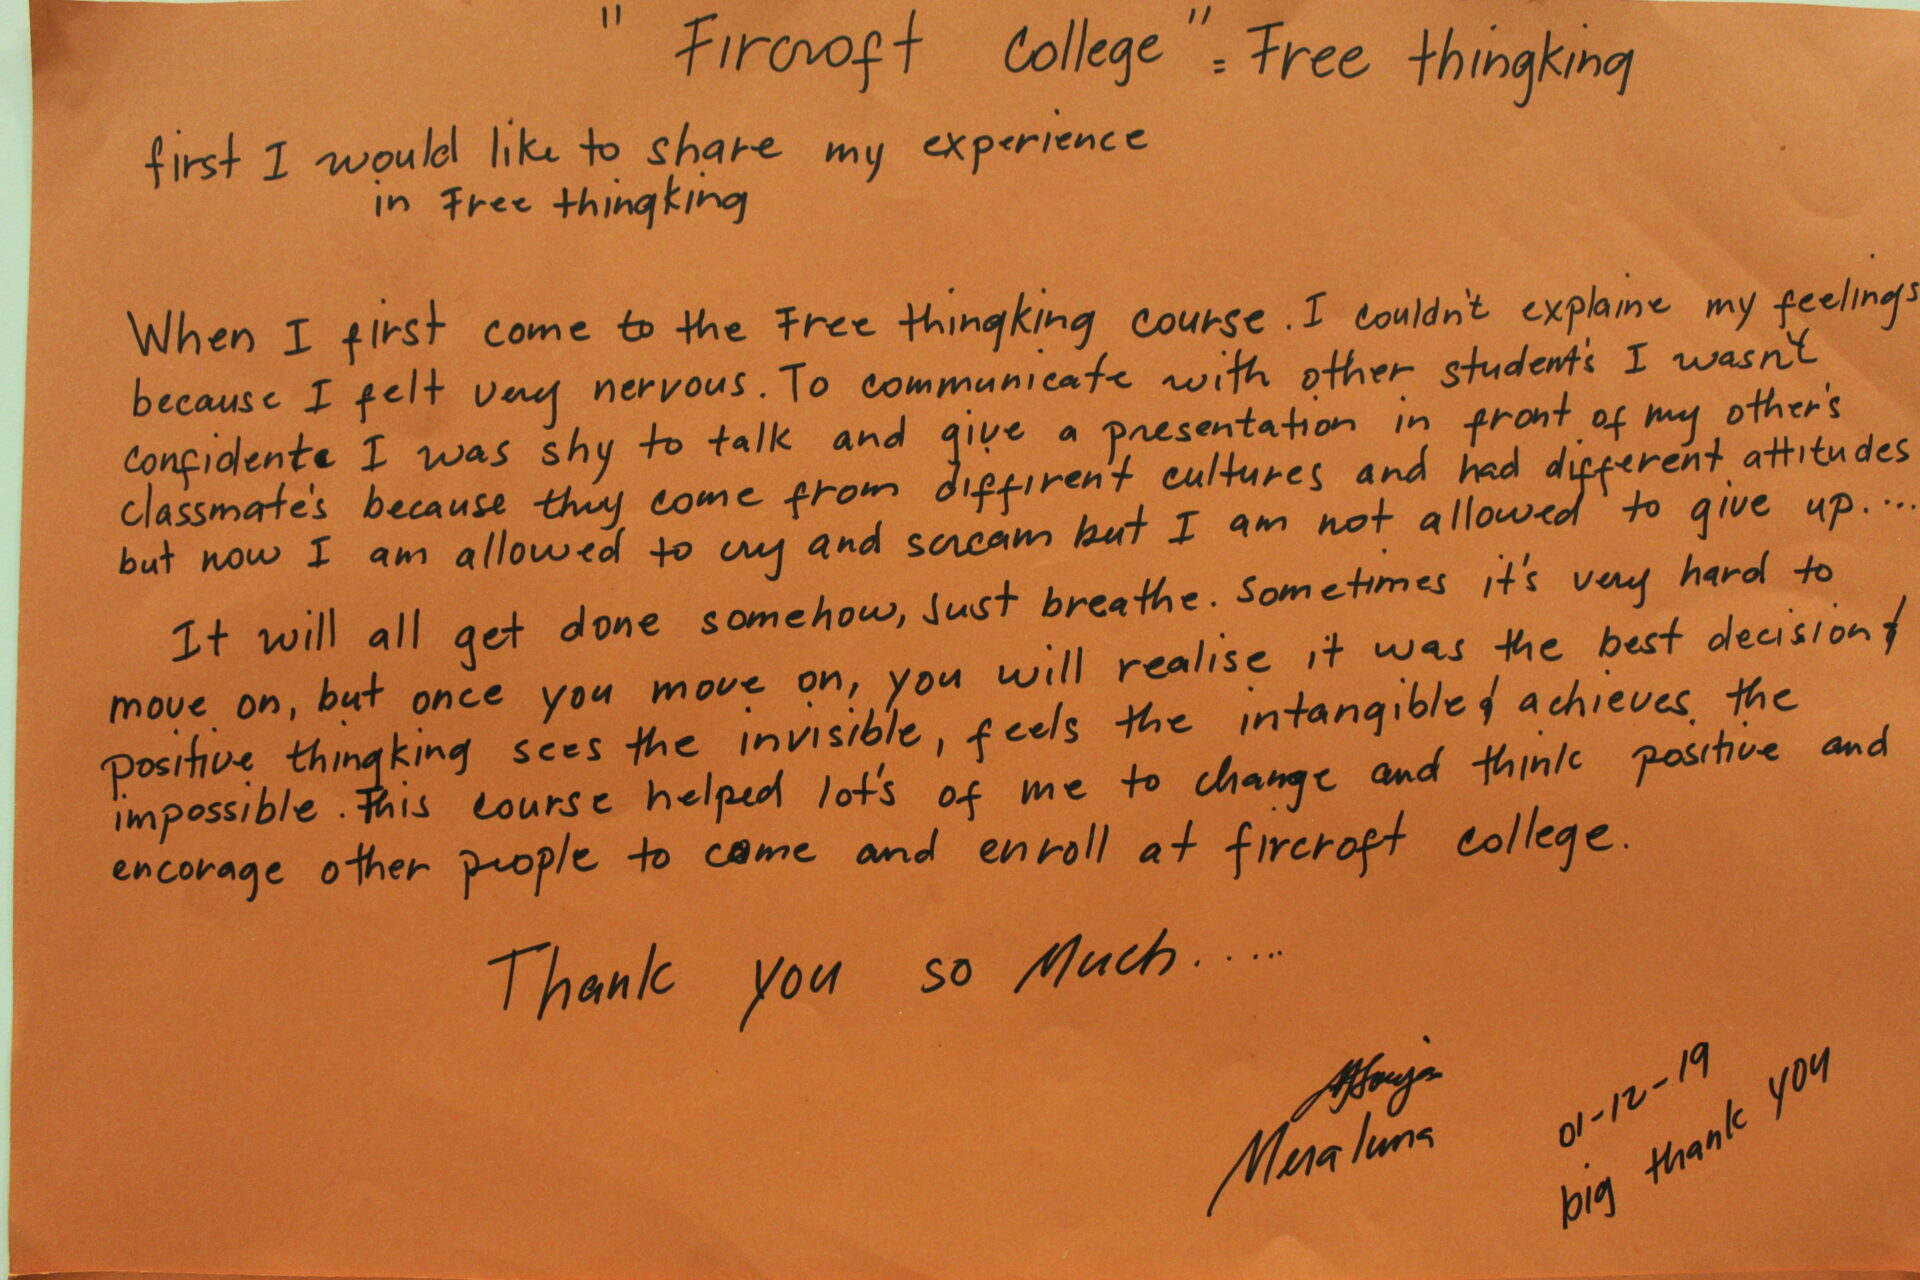 "Fircroft College" = Free thingking
first I would like to share my experience
in Free thingking
When I first come to the Free thingking course. I couldn't explaine my feelings
because I felt very nervous. To communicate with other student's I wasn't
confidente I was shy to talk and give a presentation in front of my other's
classmate's because they come from diffirent cultures and had different attitudes
but now I am allowed to cry and scream but I am not allowed to give up....
It will all get done somehow, Just breathe. Sometimes it's very hard to
move on, but once you move on, you will realise it was the best decision &
positive thingking sees the invisible, feels the intangible & achieves the
impossible. This course helped lot's of me to change and think positive and
encorage other people to come and enroll at fircroft college.
Thank you so Much.....
Meraluna
01-12-19
big thank you